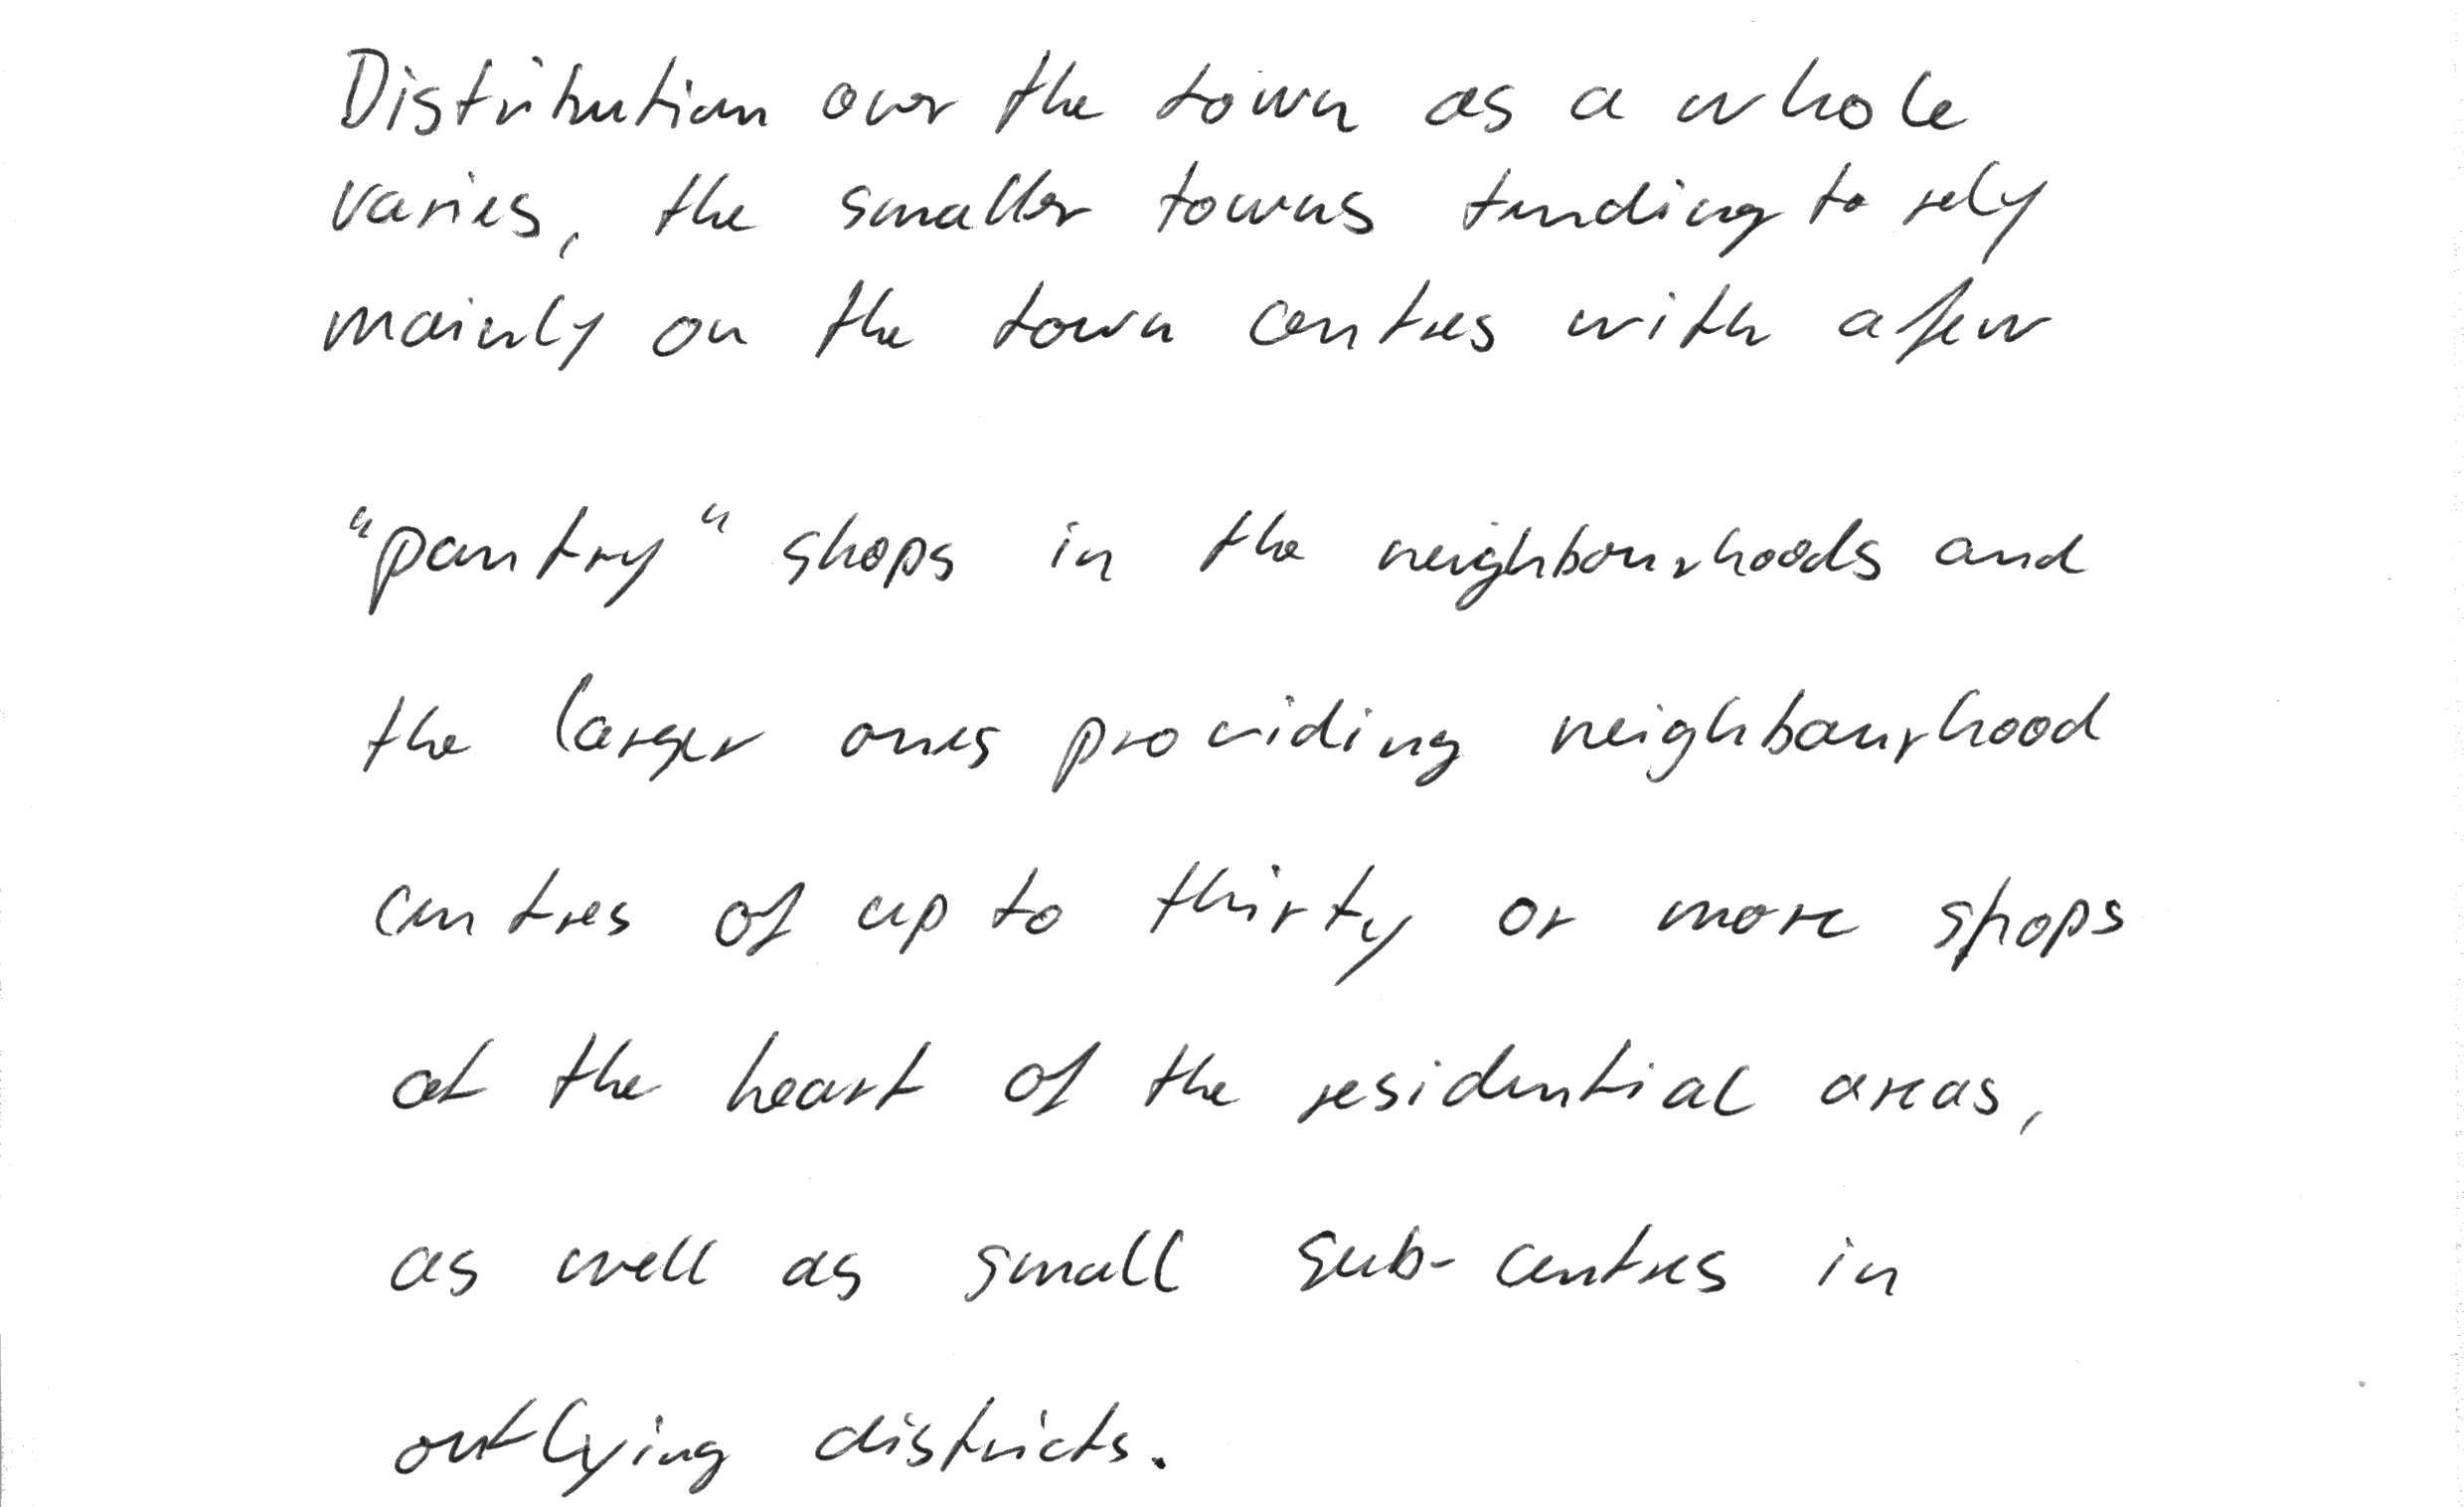 Distribution over the town as a whole
varies, the smaller towns tending to rely
mainly on the town centres with a few
"pantry" shops in the neighbourhoods and
the larger ones providing neighbourhood
centres of up to thirty or more shops
at the heart of the residential areas,
as well as small sub-centres in
outlying districts.